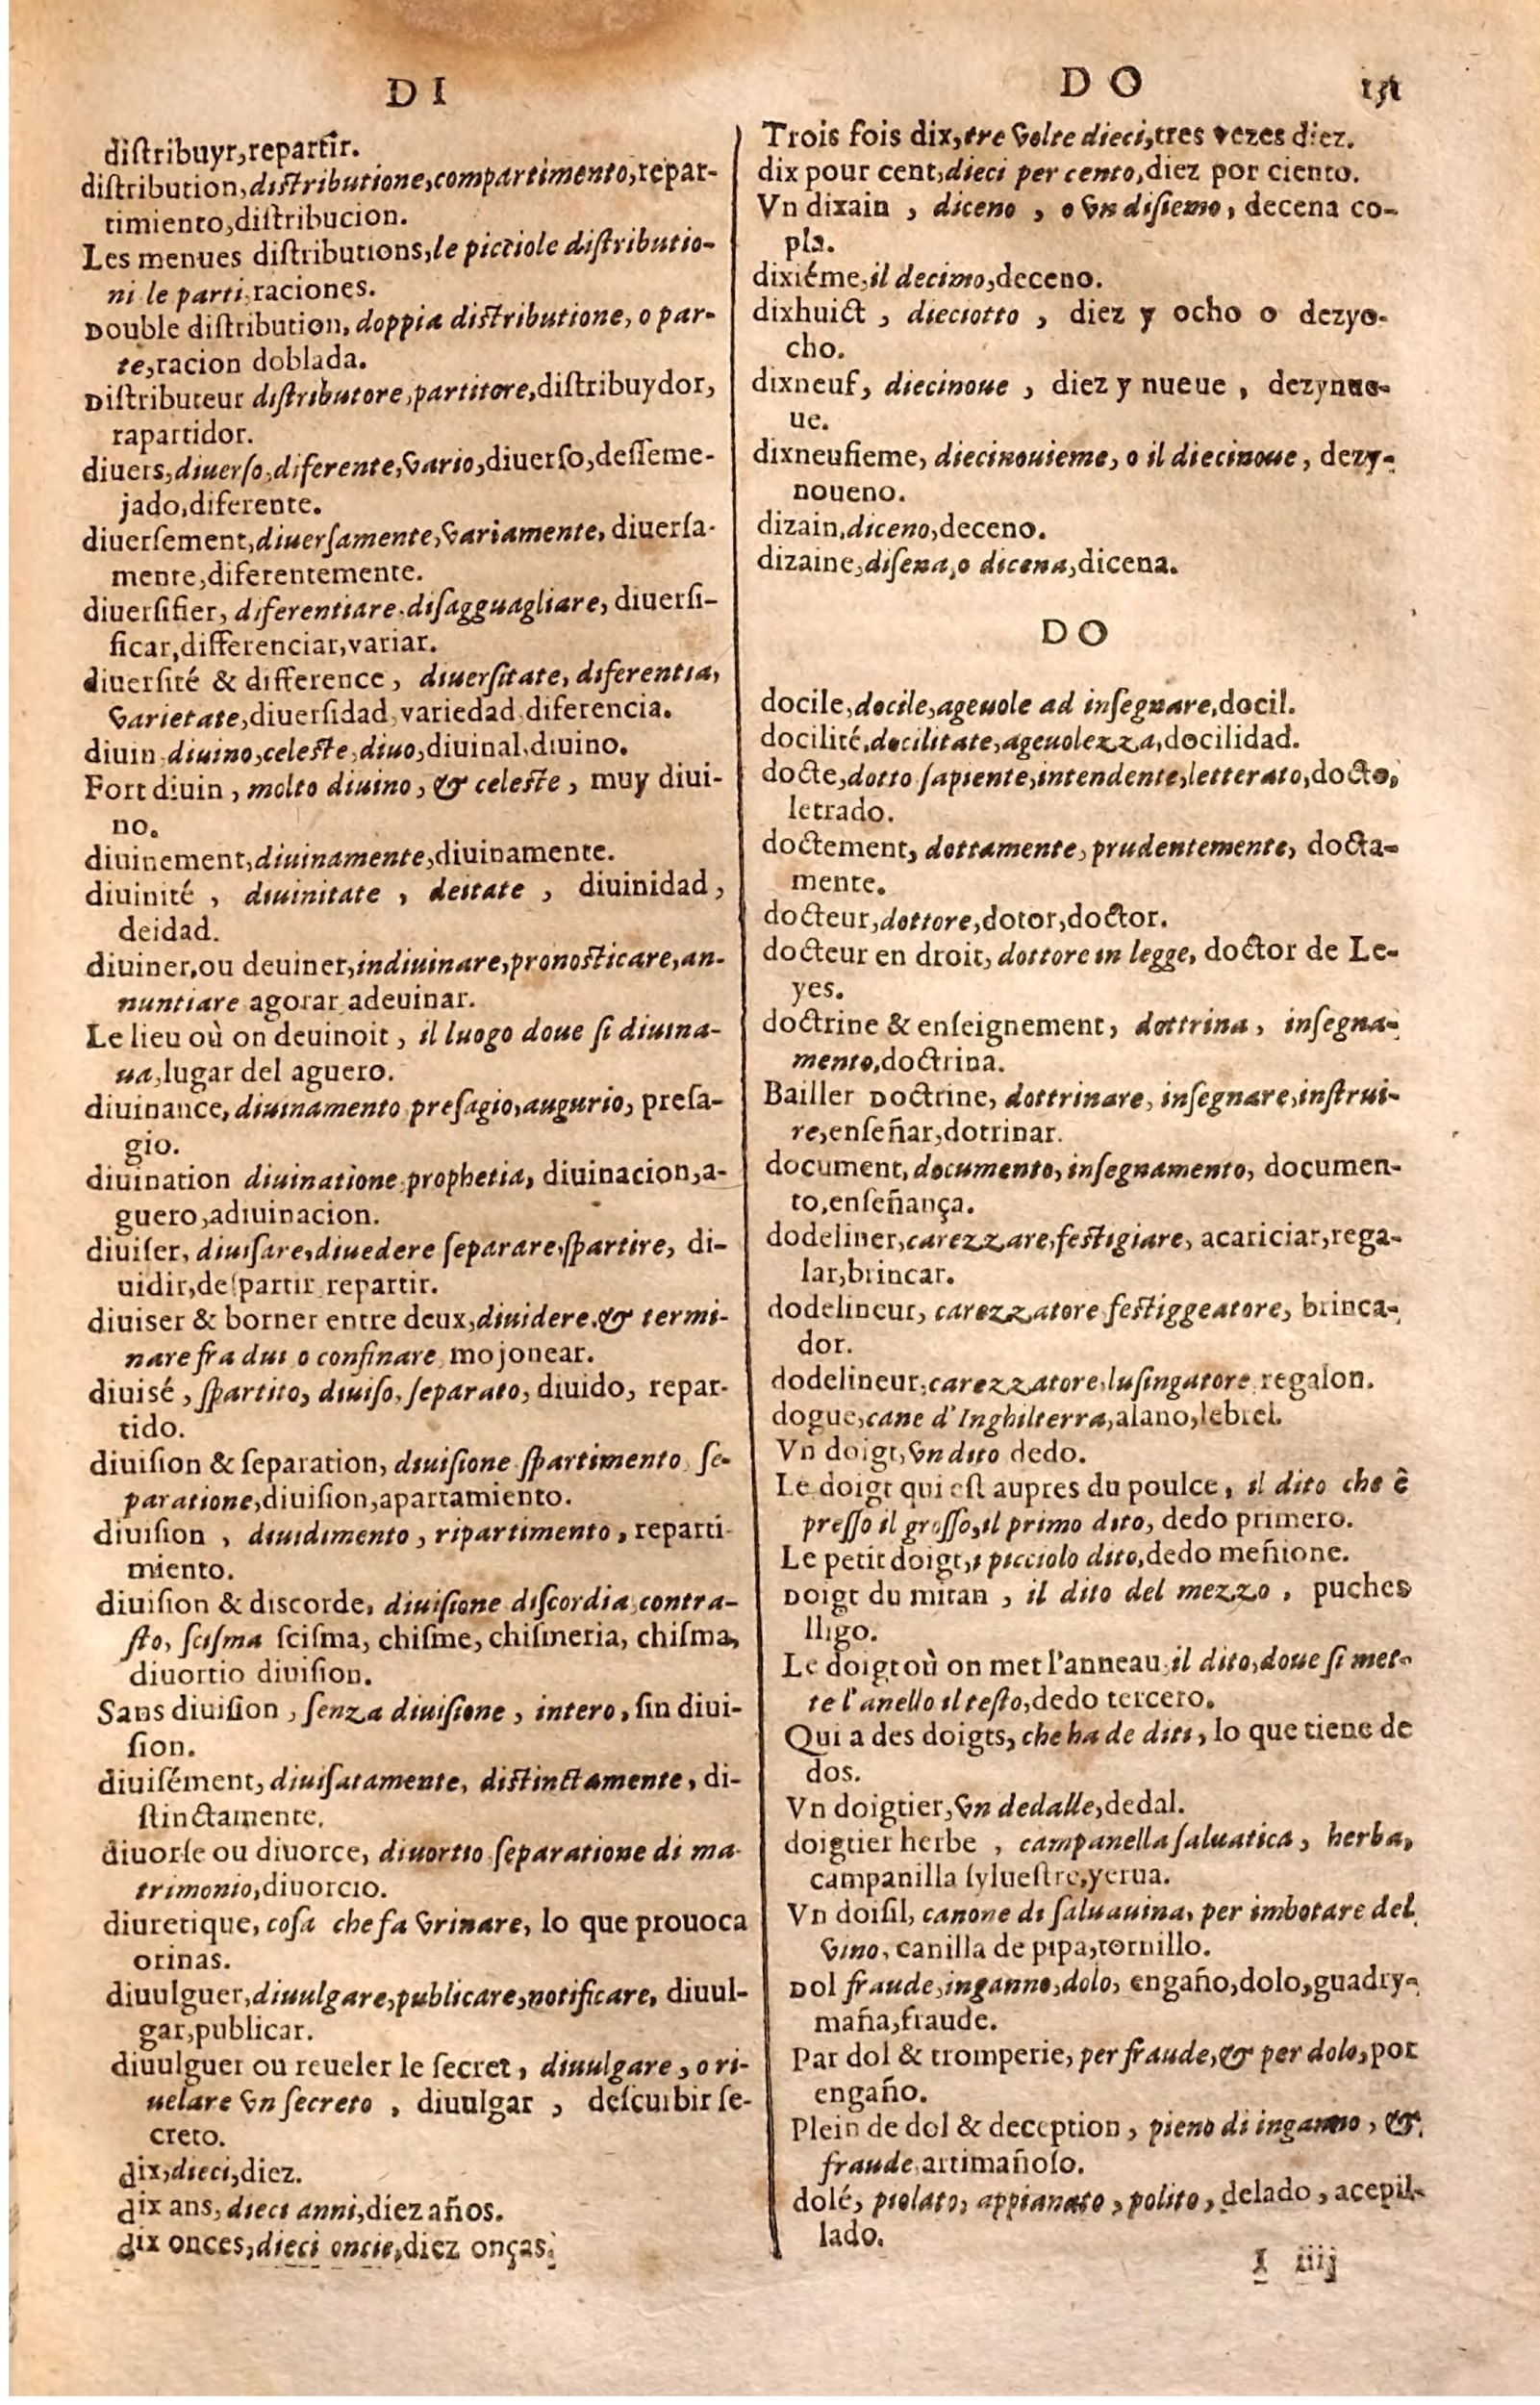 D I
diſtribuyr,repartir.
diſtribution,diſtributione,compartimento,repar-
timiento,diſtribucion.
Les menues diſtributions,le picciole diſtributio-
ni le parti,raciones.
Double diſtribution, doppia diſtributione, o par-
te,racion doblada.
Diſtributeur diſtributore,partitore,diſtribuydor,
rapartidor.
diuers,diuerſo,diferente,vario,diuerſo,deſſeme-
jado,diferente.
diuerſement,diuerſamente,variamente, diuerſa-
mente,diferentemente.
diuerſifier, diferentiare,diſagguagliare, diuerſi-
ficar,differenciar,variar.
diuerſité & difference, diuerſitate, diferentia,
varietate,diuerſidad,variedad,diferencia.
diuin,diuino,celeſte,diuo,diuinal,diuino.
Fort diuin, molto diuino, & celeſte, muy diui-
no.
diuinement,diuinamente,diuinamente.
diuinité , diuinitate , deitate , diuinidad,
deidad.
diuiner,ou deuiner,indiuinare,pronoſticare,an-
nuntiare agorar,adeuinar.
Le lieu où on deuinoit, il luogo doue ſi diuina-
ua,lugar del aguero.
diuinance, diuinamento preſagio,augurio, preſa-
gio.
diuination diuinatione,prophetia, diuinacion,a-
guero,adiuinacion.
diuiſer, diuiſare,diuedere ſeparare,ſpartire, di-
uidir,deſpartir repartir.
diuiſer & borner entre deux,diuidere,& termi-
nare fra dui o confinare mojonear.
diuiſé, ſpartito, diuiſo, ſeparato, diuido, repar-
tido.
diuiſion & ſeparation, diuiſione ſpartimento, ſe-
paratione,diuiſion,apartamiento.
diuiſion , diuidimento, ripartimento, reparti-
miento.
diuiſion & diſcorde, diuiſione diſcordia,contra-
ſto, ſciſma ſciſma, chiſme, chiſmeria, chiſma,
diuortio diuiſion.
Sans diuiſion, ſenza diuiſione, intero, ſin diui-
ſion.
diuiſément, diuiſatamente, diſtinctamente, di-
ſtinctamente.
diuorſe ou diuorce, diuortio ſeparatione di ma-
trimonio,diuorcio.
diuretique, coſa che fa vrinare, lo que prouoca
orinas.
diuulguer,diuulgare,publicare,notificare, diuul-
gar,publicar.
diuulguer ou reueler le ſecret, diuulgare, o ri-
uelare vn ſecreto , diuulgar , deſcuibir ſe-
creto.
dix,dieci,diez.
dix ans, dieci anni,diez años.
dix onces,dieci oncie,diez onças.
D O
Trois fois dix,tre volte dieci,tres vezes diez.
dix pour cent,dieci per cento,diez por ciento.
Vn dixain , diceno , o vn diſiemo, decena co-
pla.
dixiéme,il decimo,deceno.
dixhuict , dieciotto , diez y ocho o dezyo-
cho.
dixneuf, diecinoue , diez y nueue , dezynue-
ue.
dixneufieme, diecinouieme, o il diecinoue, dezy-
noueno.
dizain,diceno,deceno.
dizaine,diſena,o dicena,dicena.
D O
docile,docile,ageuole ad inſegnare,docil.
docilité,docilitate,ageuolezza,docilidad.
docte,dotto ſapiente,intendente,letterato,docto,
letrado.
doctement, dottamente, prudentemente, docta-
mente.
docteur,dottore,dotor,doctor.
docteur en droit, dottore in legge, doctor de Le-
yes.
doctrine & enſeignement, dottrina, inſegna-
mento,doctrina.
Bailler Doctrine, dottrinare, inſegnare,inſtrui-
re,enſeñar,dotrinar.
document, documento, inſegnamento, documen-
to,enſeñança.
dodeliner,carezzare,feſtigiare, acariciar,rega-
lar,brincar.
dodelineur, carezzatore feſtiggeatore, brinca-
dor.
dodelineur,carezzatore,luſingatore,regalon.
dogue,cane d'Inghilterra,alano,lebrel.
Vn doigt,vn dito dedo.
Le doigt qui eſt aupres du poulce, il dito che è
preſſo il groſſo,il primo dito, dedo primero.
Le petit doigt,i picciolo dito,dedo meñione.
Doigt du mitan , il dito del mezzo , puches
lligo.
Le doigt où on met l'anneau,il dito,doue ſi met-
te l'anello il teſto,dedo tercero.
Qui a des doigts, che ha de diti, lo que tiene de
dos.
Vn doigtier,vn dedalle,dedal.
doigtier herbe , campanella ſaluatica, herba,
campanilla ſylueſtre,yerua.
Vn doiſil, canone di ſaluauina, per imbotare del
vino, canilla de pipa,tornillo.
Dol fraude,inganno,dolo, engaño,dolo,guadry-
maña,fraude.
Par dol & tromperie, per fraude,& per dolo,por
engaño.
Plein de dol & deception, pieno di inganno, &
fraude artimañoſo.
dolé, piolato, appianato, polito, delado, acepil-
lado.
I iiij